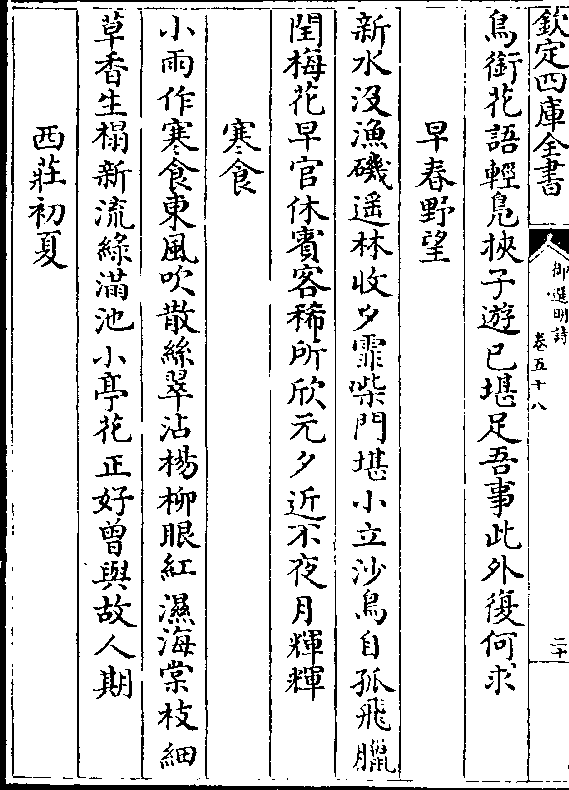 欽定四庫全書
御選明詩
卷五十八
二十
鳥銜花語輕鳧挾子遊已堪足吾事此外復何求
早春野望
新水没漁磯遥林收夕霏柴門堪小立沙鳥自孤飛臘
閏梅花早官休賓客稀所欣元夕近不夜月輝輝
寒食
小雨作寒食東風吹散絲翠沾楊柳眼紅濕海棠枝細
草香生榻新流綠滿池小亭花正好曽與故人期
西莊初夏